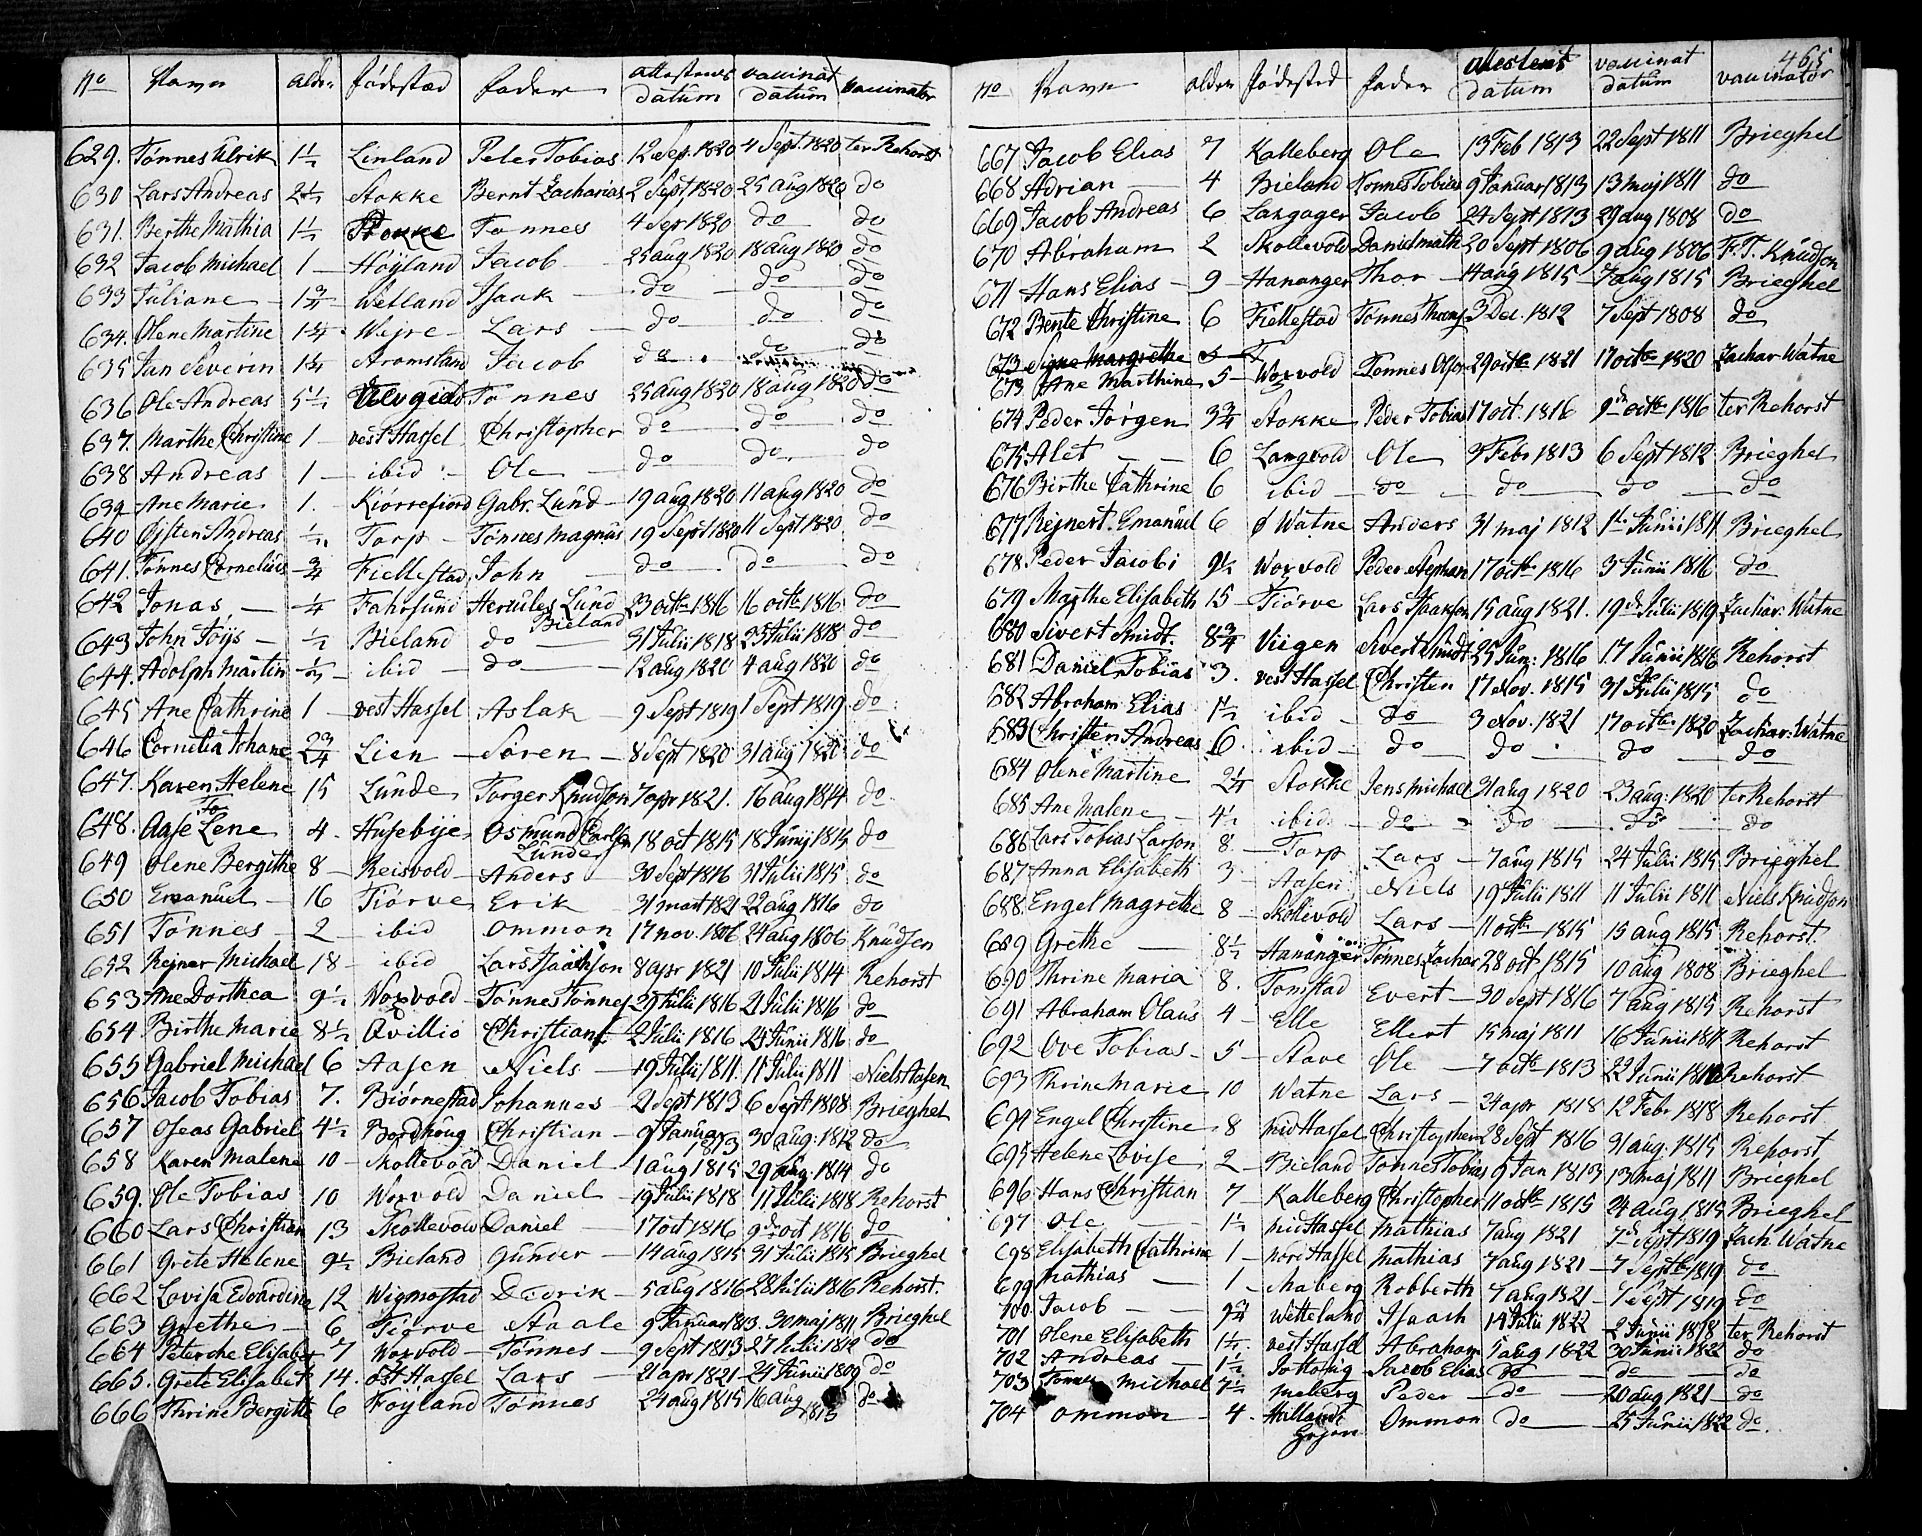 No Navn alder fødestæd fader attestens datum vaccinat datum vaccinator
629. Tønnes Ulrik 1½ Linland Peter Tobias 12 Sep. 1820 4 Sept. 1820 ter Rehorst
630 Lars Andreas 2½ Stokke Bernt Zacharias 2 Sept 1820 25 aug 1820 do
631. Berthe Mathia 1½ Stokke Tønnes 4 Sep 1820 do do
632 Jacob Michael 1 — Høyland Jacob — 25 aug 1820 18 aug 1820 do
633 Juliane — 1¾ Wetland Isaak — do — do — do
634. Olene Martine 1¼ Wejre — Lars — do do do
635 Jan Severin 1¾ Aromsland Jacob do do do
636 Ole Andreas 5½ Tønnes 25 aug 1820 18 aug 1820 do
637. Marthe Christine 1 — vest Hassel Christopher do do do
638 Andreas 1 — ibid — Ole — do do do
639 Ane Marie 1. Kiørrefiord Gabr. Lund — 19 aug 1820 11 aug 1820 do
640 Ojsten Andreas ½ Torp — Tønnes Magnus 19 Sept 1820 11 Sept 1820 do
641. Tønnes Cornelius ¾ Fiellestad John — do — do — do
642 Jonas — ¼ Fahrsund Hercules Lund 23 octb 1816 16 octb 1816 do
Bieland
643 John Töÿs — ½ Bieland do — 31 Julii 1818 23 Julii 1818 do
644. Adolph Martin ½ ibid — do — 12 aug 1820 4 aug 1820 do
645 Ane Cathrine 1 — vest Hassel Aslak — 9 Sept 1819 1 Sept 1819 do
646 Cornelia Johane 2¾ Lien — Søren — 8 Sept 1820 31 aug 1820 do
647. Karen Helene 15 Lunde Torger Knudson 7 apr 1821. 16 aug 1814 do
648. Aase Lene 4 — Husebÿe Osmund Carlsen 18 oct 1815 18 Junij 1815 do
Lunde
649 Olene Bergithe 8 — Reisvold — Anders — 30 Sept 1816 31 Julii 1815 do
650 Emanuel — 16 Tiørve Erik — 31 mart 1821 22 aug 1816 do
651 Tønnes — 2 — ibid Ommon 17 nov. 1806 24 aug 1806 Knudsen
652 Rejner Michael 18 — ibid Lars Isaachson 8 apr 1821 10 Julii 1814 Rehorst
653 Ane Dorthea 9½ Worvold — Tønnes Tønnes 29 Julii 1816 21 Julii 1816 do
654 Birthe Marie 8½ Qvillio Christian — 2 Julii 1816 25 Junii 1816 do
655 Gabriel Michael 6 Aasen Niels — 19 Julii 1811. 11 Julii 1811 Niels Aasen
656 Jacob Tobias 7. Biørnestad Johannes — 21 Sept 1813 6 Sept 1808 Brieghel
657 Oseas Gabriel 4½ Bordhoug Christian — 9 Januar 1813 30 aug: 1812 do
658 Karen Malene 10 — Skollevod Daniel — 1 aug 1815 29 aug. 1814 do
659. Ole Tobias 10 Worvold Daniel — 19 Julii 1818 11 Julii 1818 Rehorst
660 Lars Christian 13 Skollevold Daniel — 17 oct 1816 9 oct 1816 do
661 Grete Helene 9½ Bieland Gunder — 14 aug 1815 31 Julii 1815 Brieghel
662 Lovisa Edvardine 12 Wigmostad Didrik — 5 aug 1816 28 Julii 1816 Rehorst.
663 Grethe — 6 Tiørve Staale 9 Januar 1813. 30 maj 1811 Brieghel
664 Peterche Elisabet 7 Worvold — Tønnes — 9 Sept 1813 27 Julii 1812 do
665. Grete Elisabet 14. øst Hassel Lars — 21 apr 1821 — 24 Junii 1809 do
666 Thrine Bergitte 6 Frøyland Tønnes 24 aug 1815 16 aug 1815 do
465
No Navn alder fødestæd fader attestens datum vaccinat datum vaccinator
667 Jacob Elias 7 Kalleberg Ole 13 Feb 1813 22 Sept 1811 Brieghel
668 Adrian — 4 Bieland Tønnes Tobias 9 Januar 1813 13 maj 1811 do
669 Jacob Andreas 6 Langager Jacob 24 Sept 1813 29 aug 1808 do
670 Abraham 2 Skollevold Daniel Math 20 Sept 1806 9 aug 1806 F. T. Knudson
671 Hans Elias — 9 — Hananger Thor — 14 aug 1815 — 7 aug 1815 Brieghel
672 Bente Christine 6 Fiellestad Tønnes 3 Dec. 1812 7 Sept 1808 do
673 Signe Margrethe
673 Ane Marthine 5 — Worvold Tonnes Olson 29 octb 1821 17 octb 1820 Zachar. Watne
674 Peder Jørgen 3¾ Stokke Peder Tobias 17 oct. 1816 9 octb 1816 ter Rehorst
675 Alet — 6 Langvold Ole — 9 Febr 1813 6 Sept 1812 Brieghel
676 Birthe Cathrine 6 ibid — do — do — do — do
677 Rejnert Emanuel 6 ø Watne Anders 31 maj 1812 1 Junii 1811 Brieghel
678 Peder Jacobi 9½ Worvold Peder Stephan 17 octb 1816 3 Junii 1816 do
679 Marthe Elisabeth 15 — Tiörve Lars Isaakson 15 aug 1821. 19 Julii 1819 Zachar: Watne
680 Sivert Smidt. 8¾ Viigen Sivert Smidt 25 Jun: 1816 17 Junii 1816 Rehorst
681 Daniel Tobias 3. vest Hassel Christen 17 Nov. 1815 31 Julii 1815 do
682 Abraham Elias 1½ ibid — do 3 Nov. 1821 17 octb 1820 Zachar: Watne
683 Christen Andreas 6 ibid — do do — do do
684 Olene Martine 2¼ Stokke Jens Michael 31 aug 1820 23 aug: 1820 ter Rehorst
685 Ane Malene — 4½ ibid — do — do do do
686 Lars Tobias Larson 8 — Torp Lars — 7 aug 1815 24 Julii 1815 Brieghel
687 Anna Elisabeth 3 — Aasen Niels 19 Julii 1811 11 Julii 1811 Niels Knudson
688. Engel Magrethe 8 — Skollevold Lars — 11 octb 1815 15 aug 1815 Rehorst.
689 Grethe — 8½ Hananger Tønnes Zachar 28 oct 1815 10 aug 1808 Brieghel
690 Thrine Maria 8. Tomstad Evert — 30 Sept 1816 7 aug 1815 Rehorst
691 Abraham Olaus 4 — Elle Ellert 15 maj 1811 16 Junii 1811 Rehorst
692 Ove Tobias — 5 — Stave Ole — 7 octb 1813 22 Junii Rehorst
693 Thrine Marie 10 Watne Lars — 24 apr 1818 12 Febr 1818 Rehorst
694 Engel Christine 8 mid Hassel Christopher 28 Sept 1816 31 aug. 1815 Rehorst
695 Helene Lovise 2 — Bieland Tønnes Tobias 9 Jan 1813 13 maj 1811 Brieghel
696 Hans Christian 7 — Kalleberg Christopher 11 octb 1815 24 aug 1815 Brieghel
697 Ole — 1½ mid Hassel Mathias 7 aug 1821 7 Sept 1819 Zach. Watne
698 Elisabeth Cathrine 1 — nore Hassel Mathias 7 aug 1821 — 7 Septb 1819 do
699 Mathias — 1 — Maberg Robberth 7 aug 1821 — 7 Sept 1819 do
700 Jacob — 9¾ Wetteland Isaach 14 Julii 1822 2 Junii 1818 ter Rehorst
701 Olene Elisabeth 1½ vest Hassel Abraham 5 aug 1822 30 Junii 1822 do
702 Andreas — 1½ Jacob Elias do — do — do
703 Tønnes Michael 7½ Maberg Peder — do — 20 aug 1821 — do
704 Ommon — 4. Ommon do — 25 Junii 1822 do.